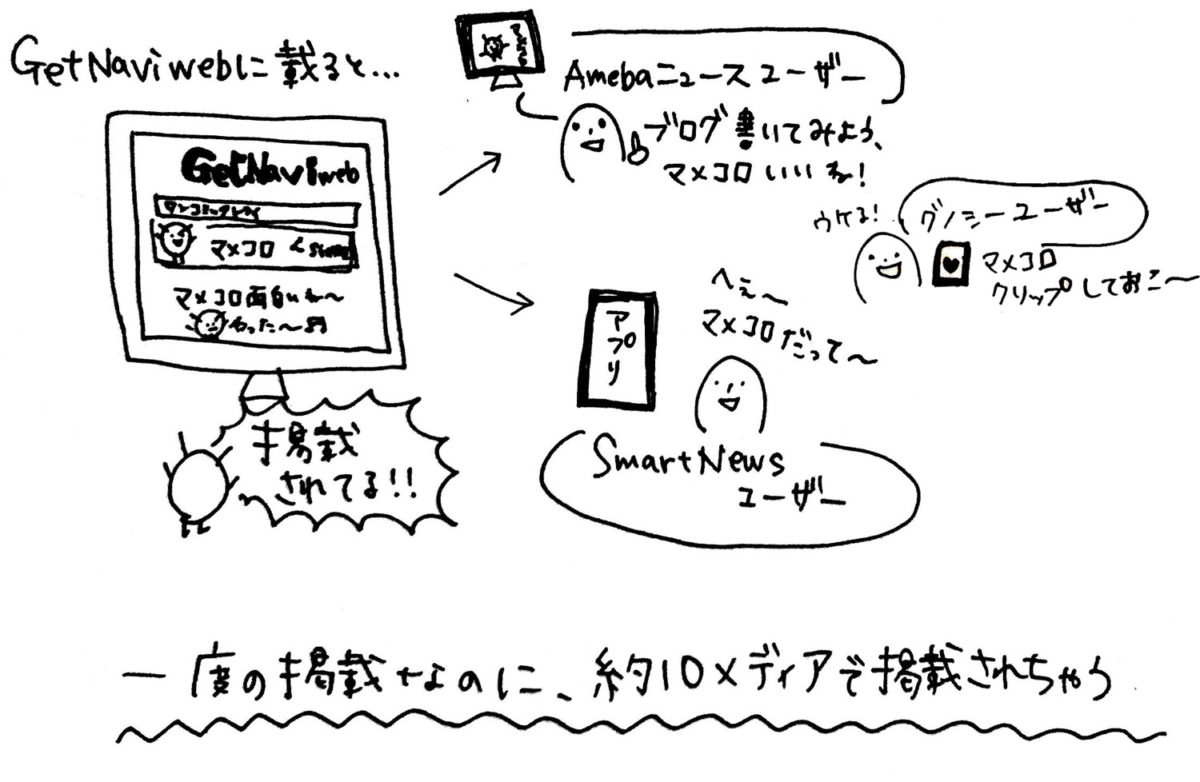 GetNaviwebに載ると...
GetNaviweb
マメコロ
マメコロ面白いね〜
Amebaニュースユーザー
ブログ書いてみよう、
マメコロいいね!
ウケる!
グノシーユーザー
マメコロ
クリップしておこ〜
へぇ〜
マメコロだって〜
アプリ
SmartNews
ユーザー
掲載
されてる!!
一度の掲載なのに、約10メディアで掲載されちゃう